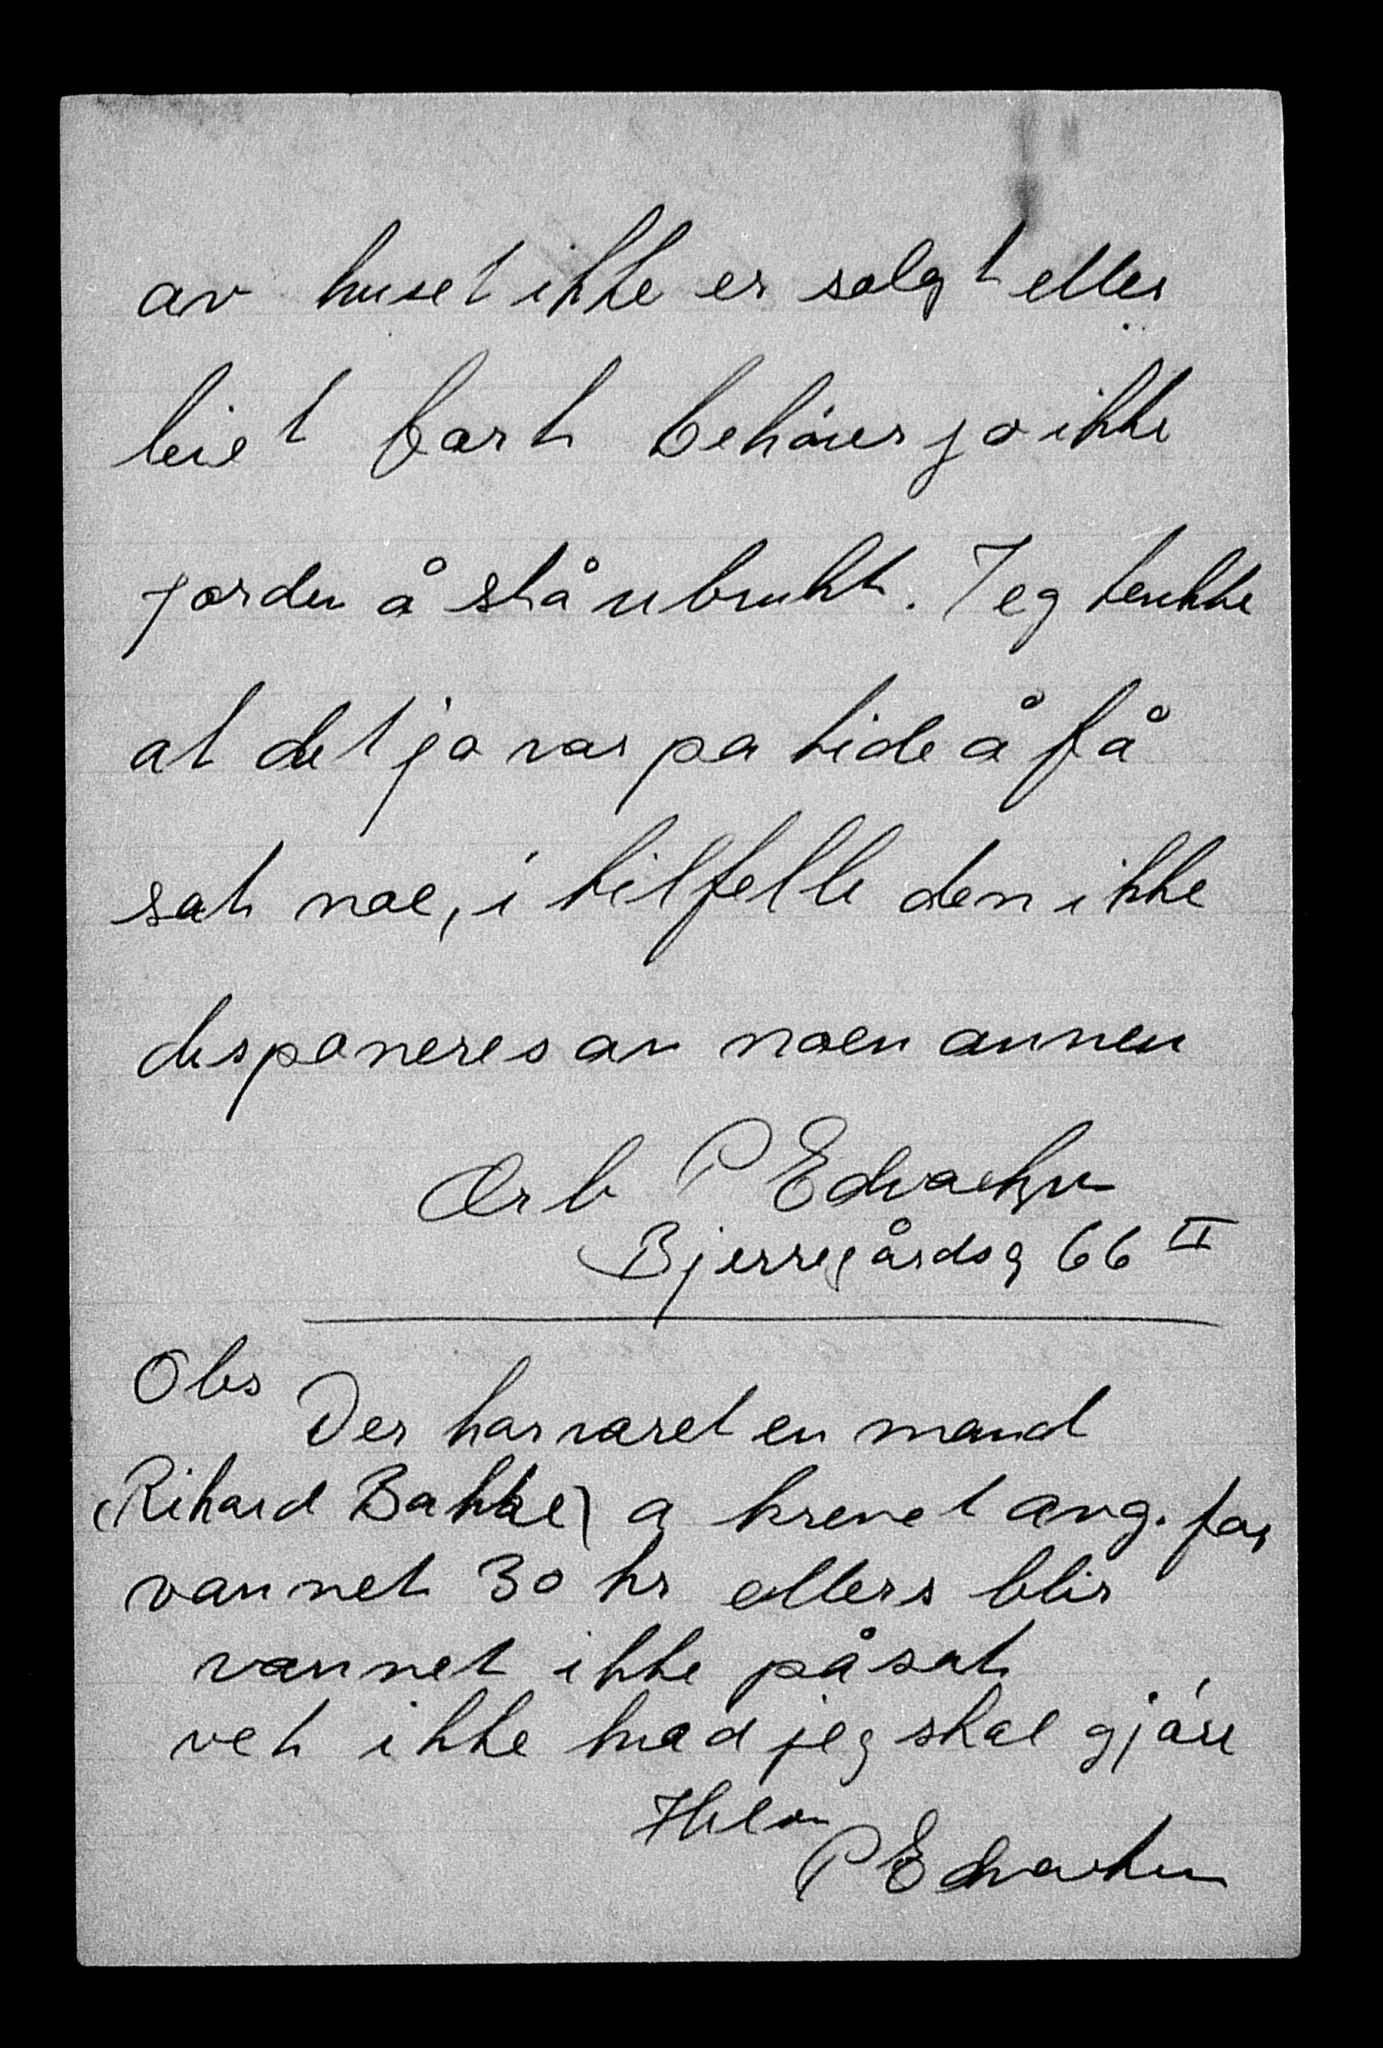 av huset ikke er solgt eller
leiet bort behöver jo ikke
jorden å stå ubrukt. Jeg tenkte
at det jo var pa tide å få
satt noe, i tilfelle den ikke
disponeres av noen annen
Ærb P Edvardsen
Bjerregårdsg 66 II
Obs
Der har været en mand
(Rihard Bakke) a krevet ang. for
vannet 30 kr ellers blir
vannet ikke påsatt
vet ikke hvad jeg skal gjöre
Hilsen
P Edvardsen